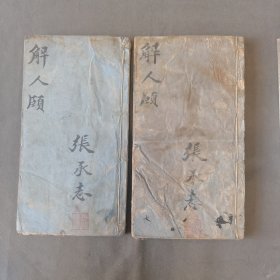 解人頤
張承志
解人頤
張承志